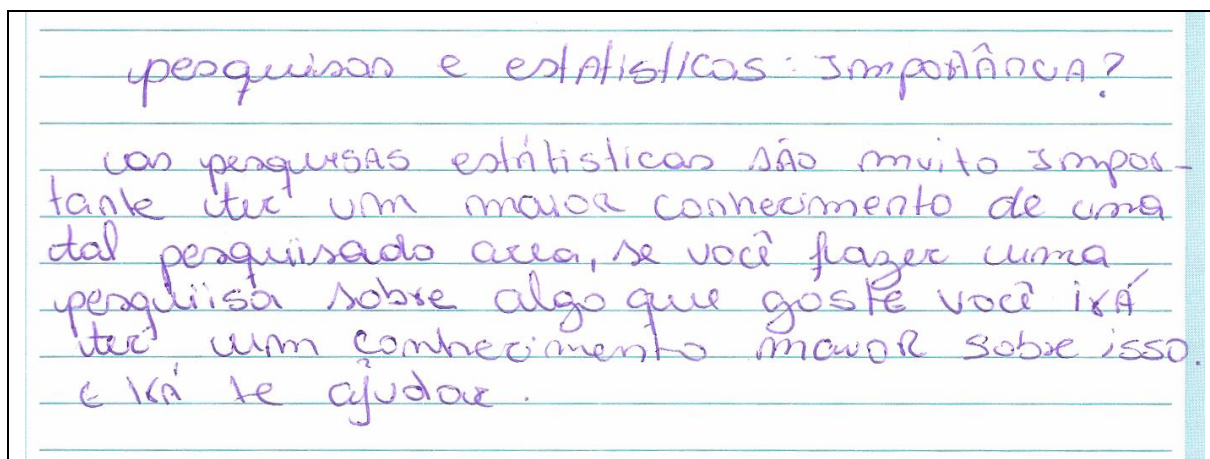 pesquisas e estAtisticas: ImportÂncia?
as pesquisAs estátisticas sÃo muito Impor-
tante ter um maior conhecimento de uma
tal pesquisado area, se você fazer uma
pesquiisa sobre algo que goste você irÁ
ter um conhecimento maioR sobre isso.
E irÁ te ajudar.